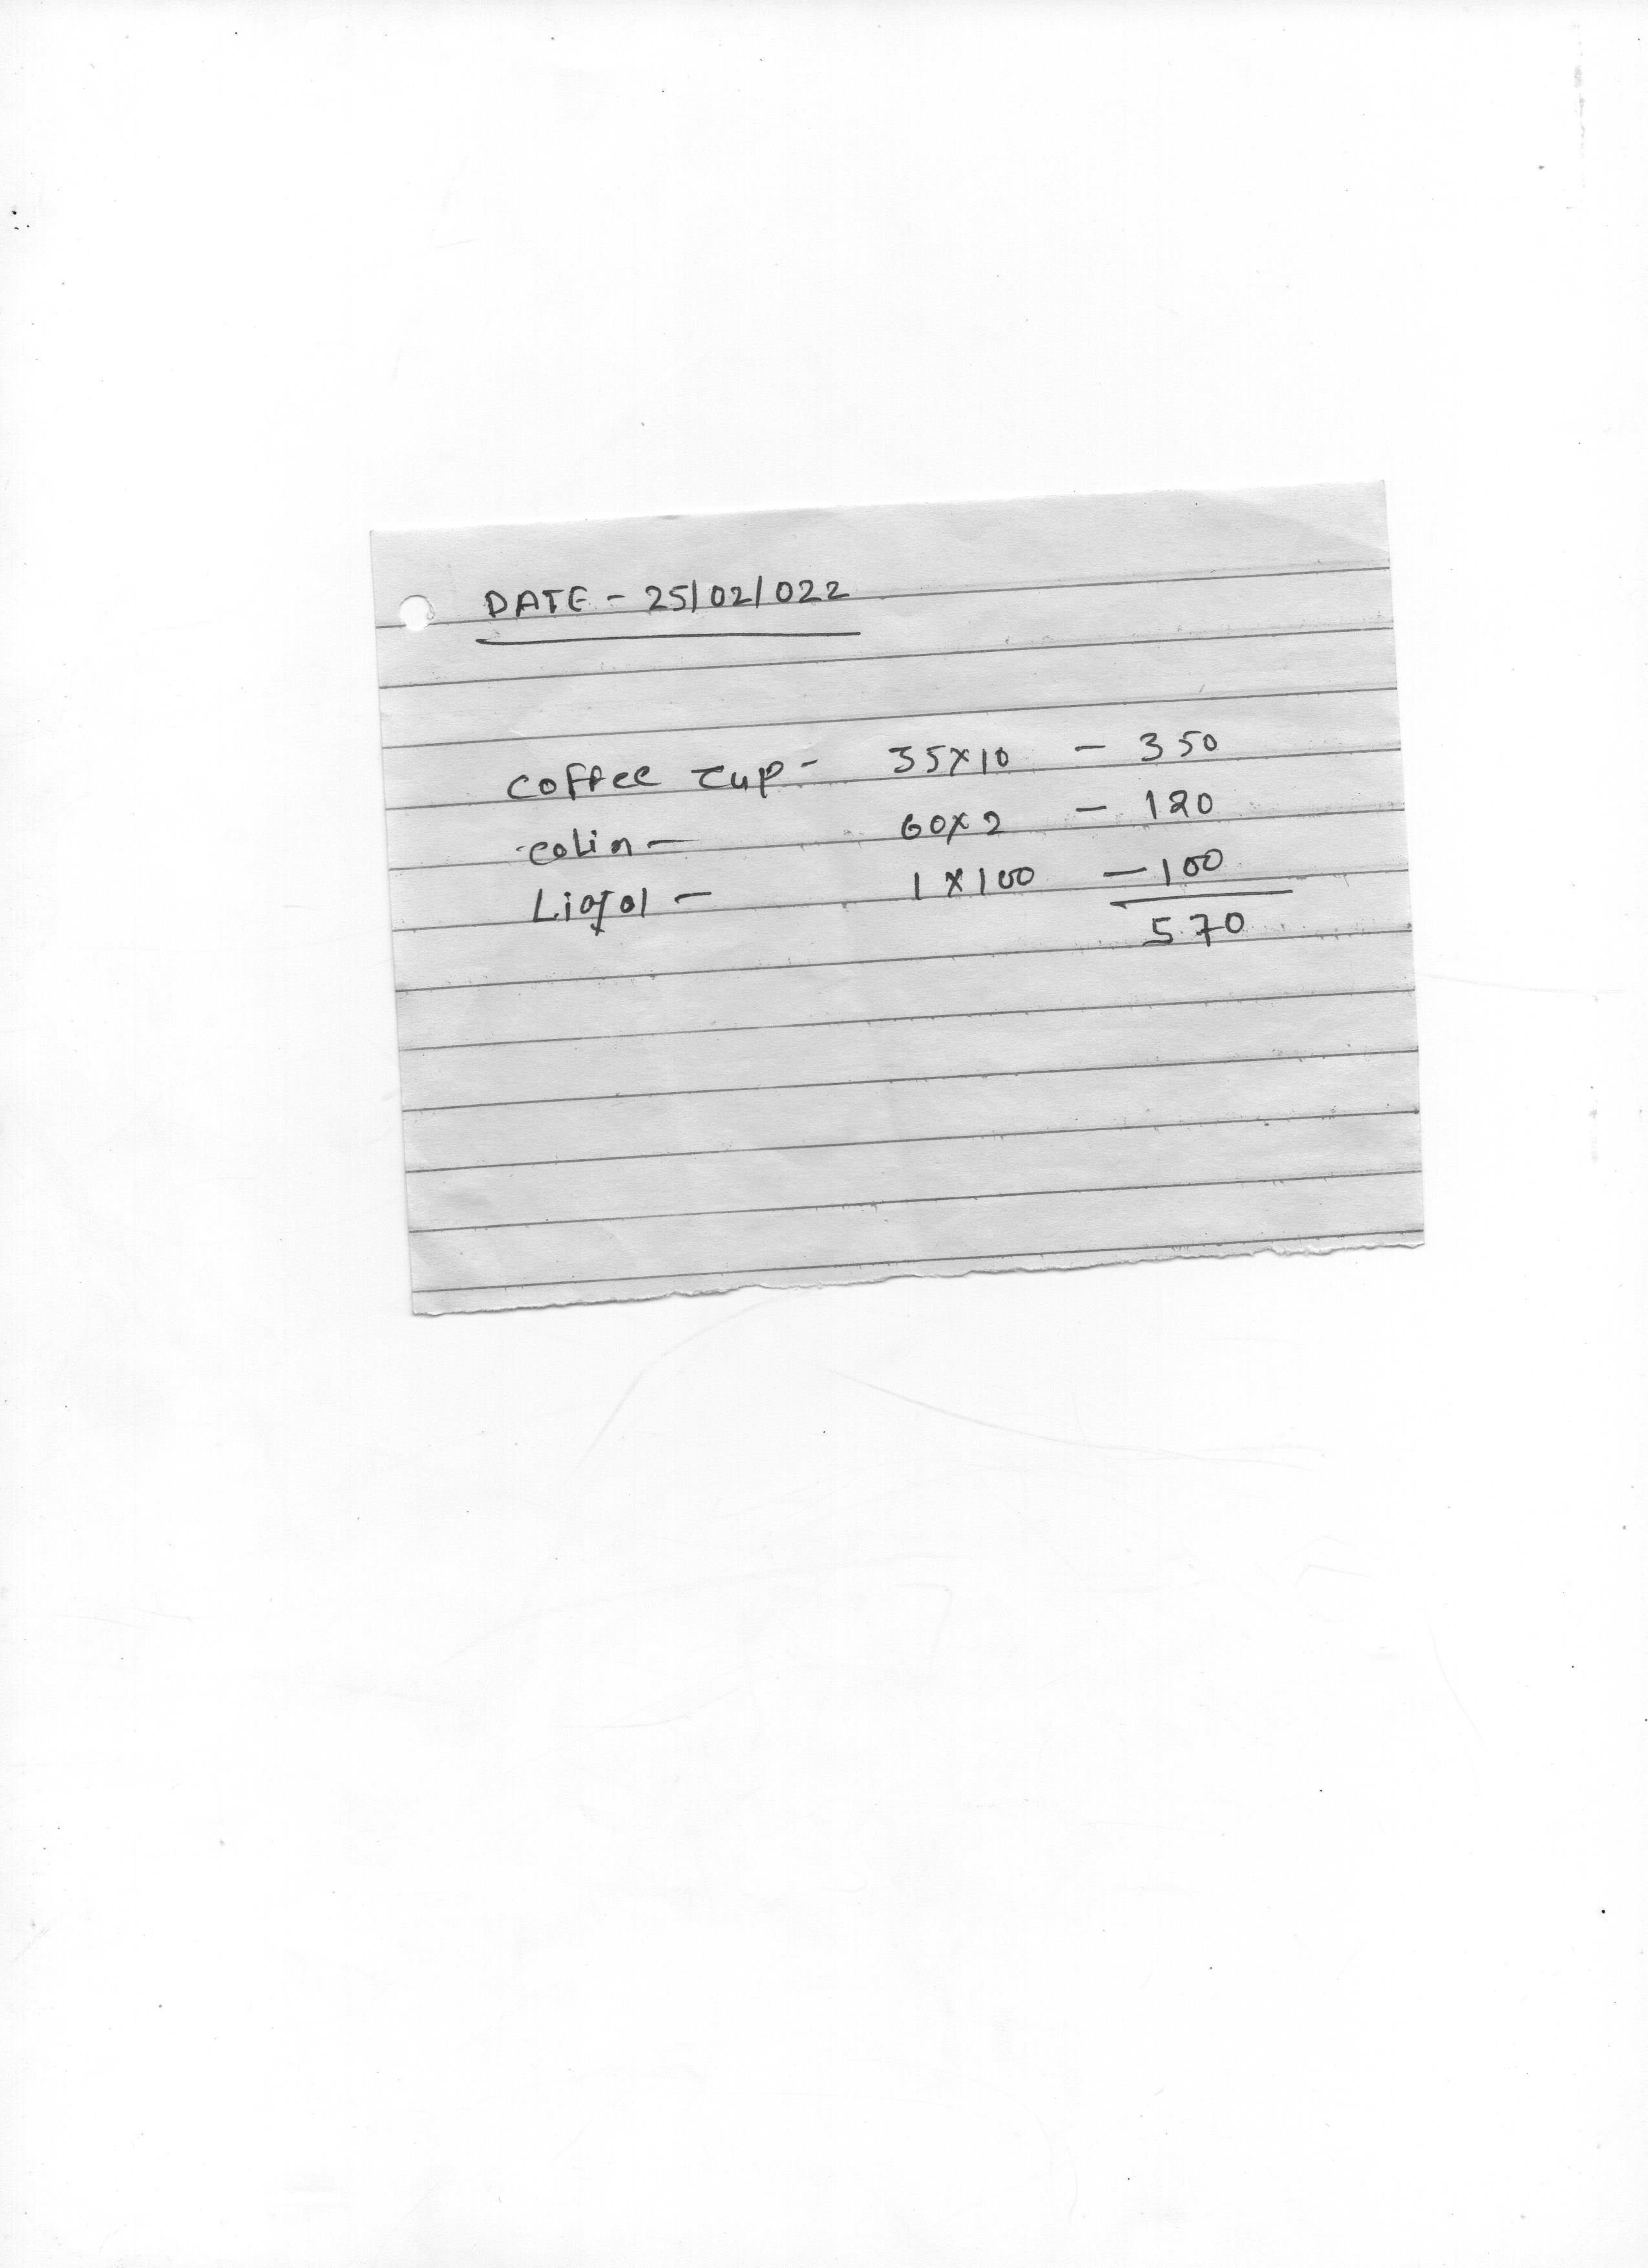 DATE - 25/02/022
Coffee Cup - 35x10 - 350
Colin - 60x2 - 120
1x100 - 100
570